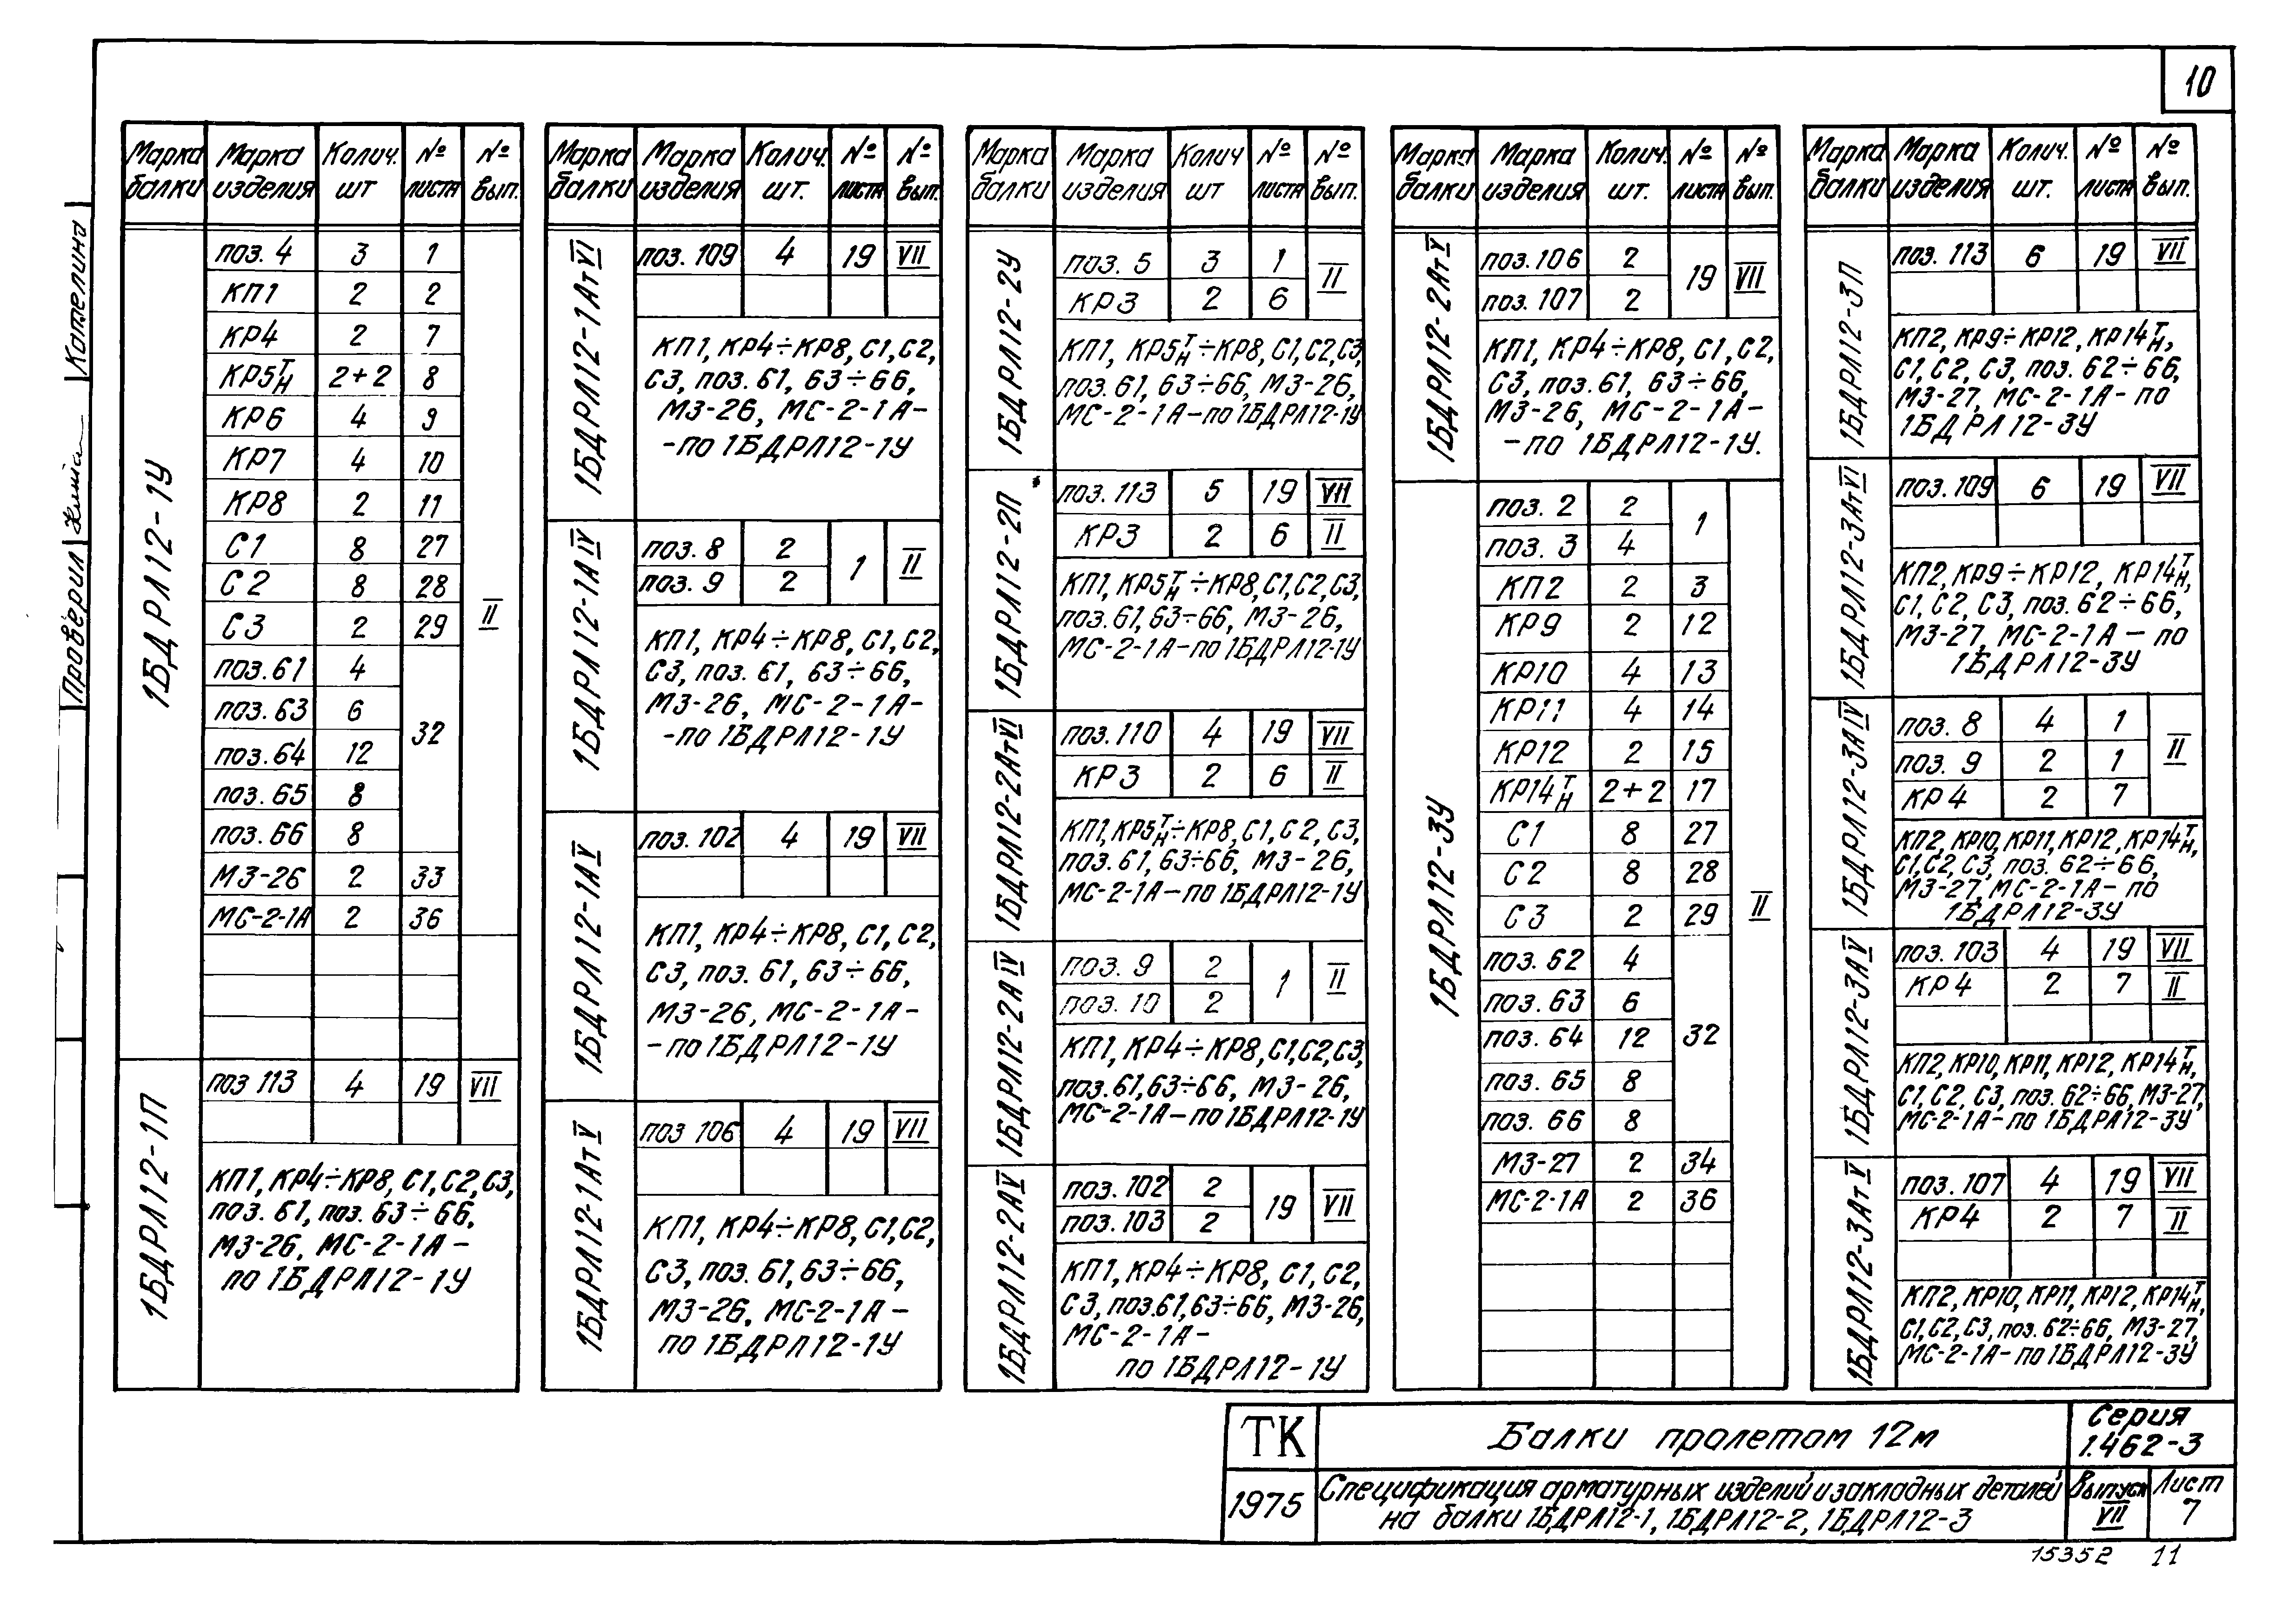 10
Марка балки Марка изделия Колич. шт № листа № вып.
1БДРЛ12-1У
поз. 4 3 1
КП1 2 2
КР4 2 7
КР5тн 2+2 8
КР6 4 9
КР7 4 10
КР8 2 11
С1 8 27
С2 8 28
С3 2 29
II
поз.61 4
поз.63 6
32
поз.64 12
поз.65 8
поз.66 8
М3-26 2 33
МС-2-1А 2 36
1БДРЛ12-1П
поз 113 4 19 VII
КП1, КР4÷КР8, С1, С2, С3,
поз. 61, поз. 63÷66,
М3-26, МС-2-1А –
по 1БДРЛ12-1У
Марка балки Марка изделия Колич. шт. № листа № вып.
1БДРЛ12-1АтVI
поз. 109 4 19 VII
КП1, КР4÷КР8, С1, С2,
С3, поз. 61, 63÷66,
М3-26, МС-2-1А–
-по 1БДРЛ12-1У
1БДРЛ12-1АIV
поз. 8 2 1 II
поз. 9 2
КП1, КР4÷КР8, С1, С2,
С3, поз. 61, 63÷66,
М3-26, МС-2-1А–
-по 1БДРЛ12-1У
1БДРЛ12-1АV
поз. 102 4 19 VII
КП1, КР4÷КР8, С1, С2,
С3, поз. 61, 63÷66,
М3-26, МС-2-1А–
-по 1БДРЛ12-1У
1БДРЛ12-1АтV
поз 106 4 19 VII
КП1, КР4÷КР8, С1, С2,
С3, поз. 61, 63÷66,
М3-26, МС-2-1А–
по 1БДРЛ12-1У
Марка балки Марка изделия Колич шт № листа № вып.
1БДРЛ12-2У
поз. 5 3 1 II
КР3 2 6
КП1, КР5тн÷КР8, С1, С2, С3,
поз. 61, 63÷66, М3-26,
МС-2-1А–по 1БДРЛ12-1У
1БДРЛ12-2П
поз. 113 5 19 VII
КР3 2 6 II
КП1, КР5тн÷КР8, С1, С2, С3,
поз. 61, 63÷66, М3-26,
МС-2-1А–по 1БДРЛ12-1У
1БДРЛ12-2АтVI
поз. 110 4 19 VII
КР3 2 6 II
КП1, КР5тн÷КР8, С1, С2, С3,
поз. 61, 63÷66, М3-26,
МС-2-1А–по 1БДРЛ12-1У
1БДРЛ12-2АIV
поз. 9 2 1 II
поз. 10 2
КП1, КР4÷КР8, С1, С2, С3,
поз. 61, 63÷66, М3-26,
МС-2-1А–по 1БДРЛ12-1У
1БДРЛ12-2АV
поз. 102 2 19 VII
поз. 103 2
КП1, КР4÷КР8, С1, С2,
С3, поз.61, 63÷66, М3-26,
МС-2-1А–
по 1БДРЛ12-1У
Марка балки Марка изделия Колич. шт. № листа № вып.
1БДРЛ12-2АтV
поз. 106 2 19 VII
поз. 107 2
КП1, КР4÷КР8, С1, С2,
С3, поз. 61, 63÷66,
М3-26, МС-2-1А–
-по 1БДРЛ12-1У.
1БДРЛ12-3У
поз. 2 2 1
поз. 3 4
КП2 2 3
КР9 2 12
КР10 4 13
КР11 4 14
КР12 2 15
КР14тн 2+2 17
С1 8 27
С2 8 28
С3 2 29
II
поз. 62 4
поз. 63 6
поз. 64 12 32
поз. 65 8
поз. 66 8
М3-27 2 34
МС-2-1А 2 36
Марка балки Марка изделия Колич. шт. № листа № вып.
1БДРЛ12-3П
поз. 113 6 19 VII
КП2, КР9÷КР12, КР14тн,
С1, С2, С3, поз. 62÷66,
М3-27, МС-2-1А–по
1БДРЛ12-3У
1БДРЛ12-3АтVI
поз. 109 6 19 VII
КП2, КР9÷КР12, КР14тн,
С1, С2, С3, поз. 62÷66,
М3-27, МС-2-1А – по
1БДРЛ12-3У
1БДРЛ12-3АIV
поз. 8 4 1 II
поз. 9 2 1
КР4 2 7
КП2, КР10, КР11, КР12, КР14тн,
С1, С2, С3, поз. 62÷66,
М3-27, МС-2-1А–по
1БДРЛ12-3У
1БДРЛ12-3АV
поз. 103 4 19 VII
КР4 2 7 II
КП2, КР10, КР11, КР12, КР14тн,
С1, С2, С3, поз. 62÷66, М3-27,
МС-2-1А–по 1БДРЛ12-3У
1БДРЛ12-3АтV
поз. 107 4 19 VII
КР4 2 7 II
КП2, КР10, КР11, КР12, КР14тн,
С1, С2, С3, поз. 62÷66, М3-27,
МС-2-1А–по 1БДРЛ12-3У
Проверил Котелина
ТК
Балки пролетом 12м
Серия
1.462-3
1975
Спецификация арматурных изделий и закладных деталей
на балки 1БДРЛ12-1, 1БДРЛ12-2, 1БДРЛ12-3
Выпуск
VII
Лист
7
15352 11